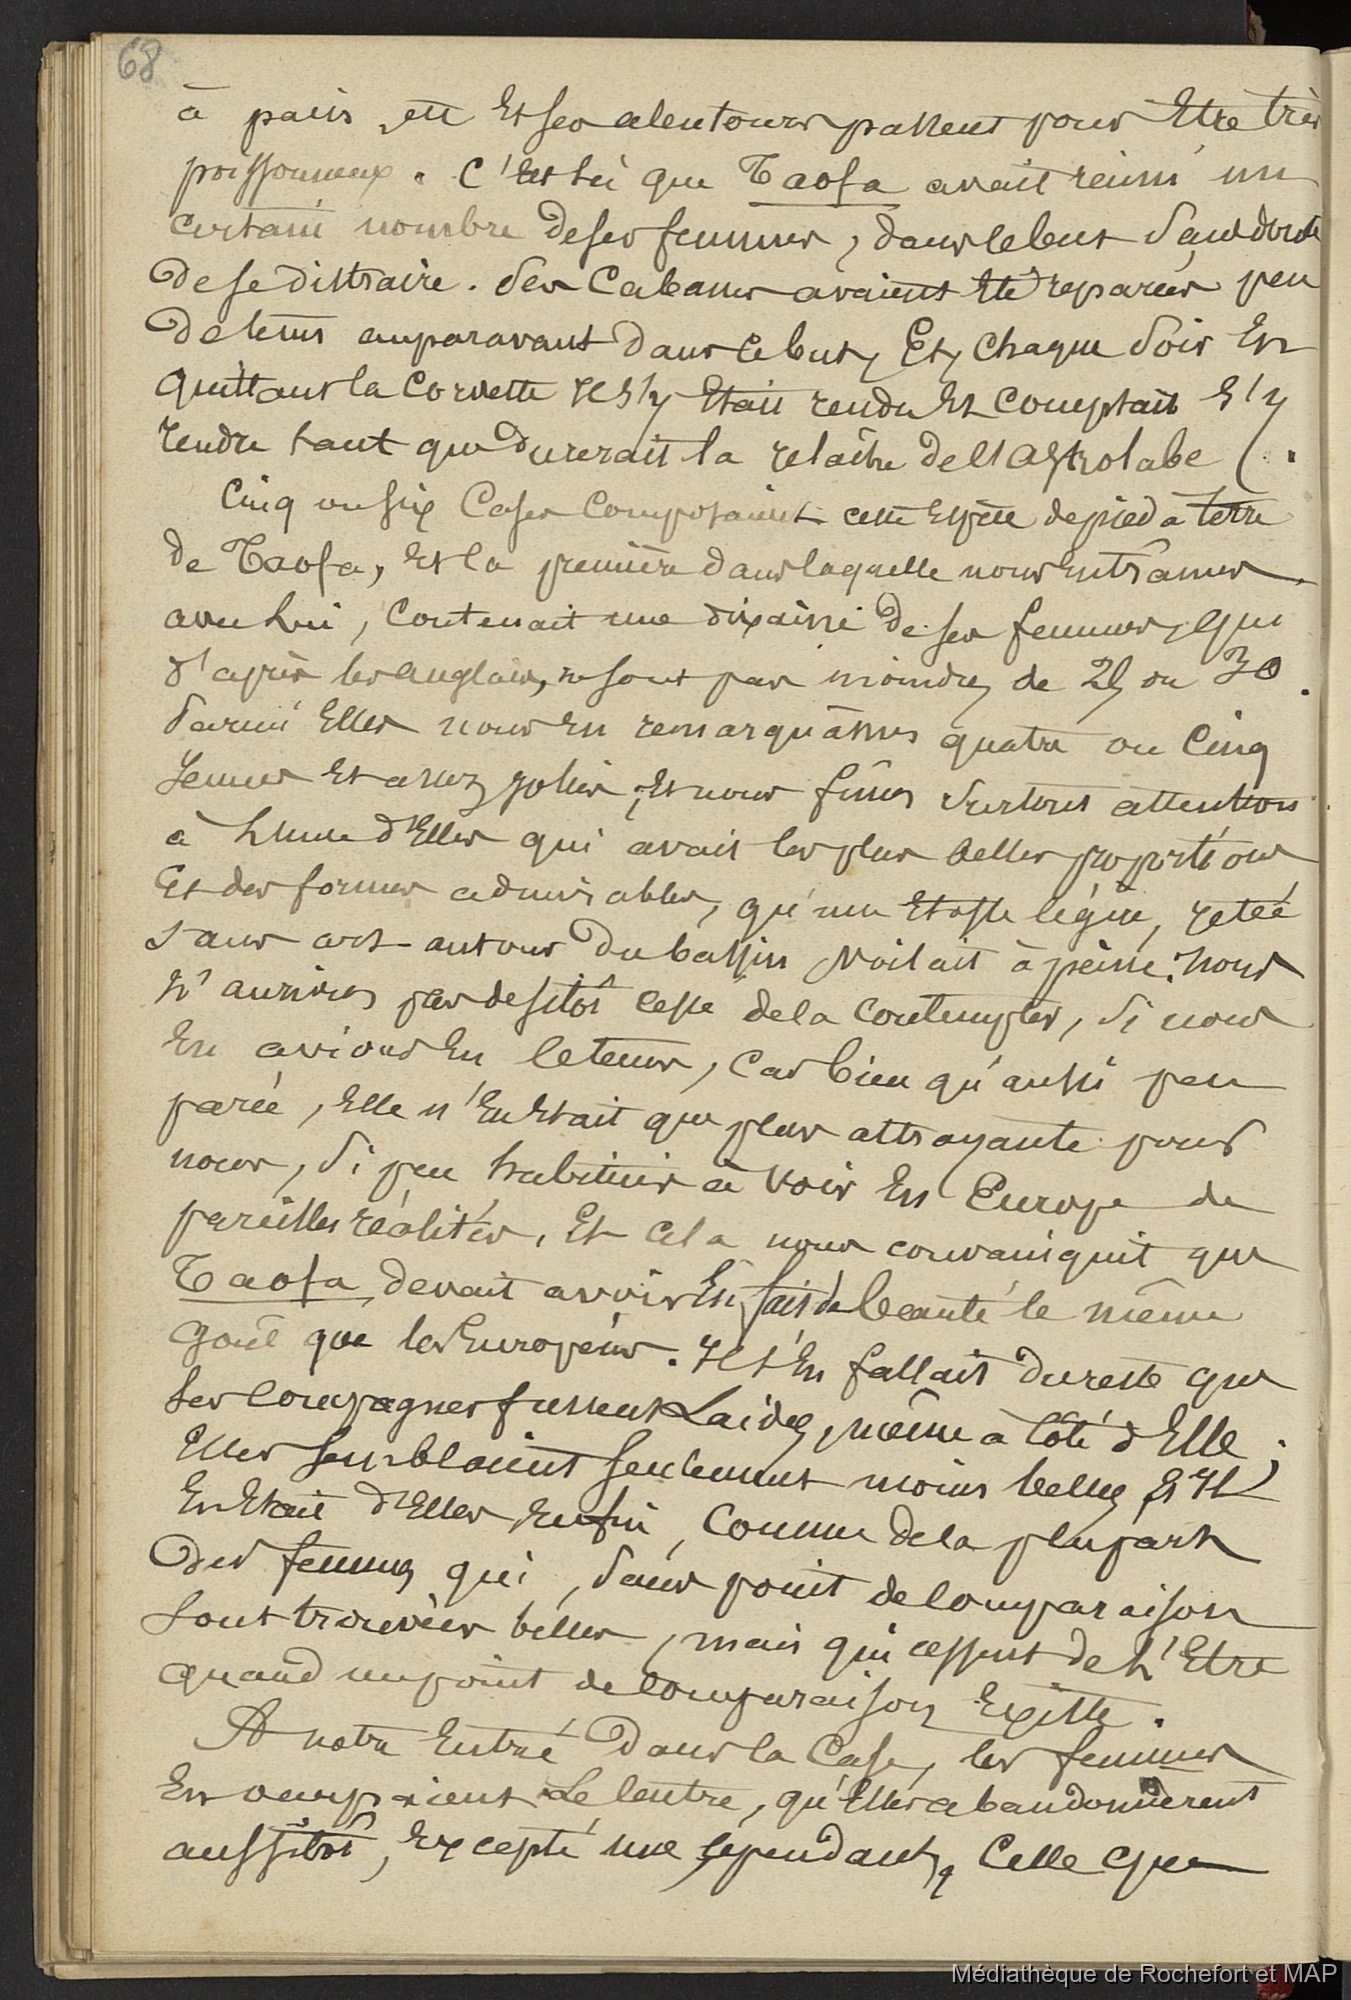 68
à païïs, et et ses alentours passent pour Etre très
poissonneux. C'est là que Taofa avait réuni un
certain nombre de ses femmes, dans le but sans doute
de se distraire. des Cabanes avaient Eté reparées peu
de tems auparavant dans ce but, Et, chaque soir En
quittant la Corvette Il s'y Etait rendu Et comptait s'y
rendre tant que durerait la relâche de l'Astrolabe (.
Cinq ou six Cases Composaient cette Espèce de pied à terre
de Taofa, Et la première dans laquelle nous Entrâmes
avec lui, Contenait une dixaine de ses femmes, qui
d'après les anglais, ne sont pas moindres de 25 ou 30.
Parmi Elles nous En remarquâmes quatre ou Cinq
Jeunes Et assez Jolies, Et nous fimes surtout attention
à l'une d'Elles qui avait les plus belles proportions
Et des formes admirables, qu'une Etoffe légère, jetée
sans art autour du bassin voilait à peine. nous
n'aurions pas de sitôt cessé de la Contempler, si nous
En avions Eu le tems, Car bien qu'aussi peu
parée, Elle n'En Etait que plus attrayante pour
nous, si peu habitués à voir En Europe de
pareilles réalités, Et cela nous convainquit que
Taofa devait avoir En fait de beauté le même
Goût que les Européens. Il s'En fallait du reste que
ses Compagnes fussent Laides, même à Côté d'Elle;
Elles semblaient seulement moins belles, Et Il
En Etait d'Elles Enfin, Comme de la plupart
des femmes qui, sans point de Comparaison
sont trouvées belles, mais qui cessent de l'Etre
quand un point de Comparaison Existe.
A notre Entrée dans la Case, les femmes
En occupaient Le Centre, qu'Elles abandonnèrent
aussitôt, Excepté une cependant, Celle que
Médiathèque de Rochefort et MAP